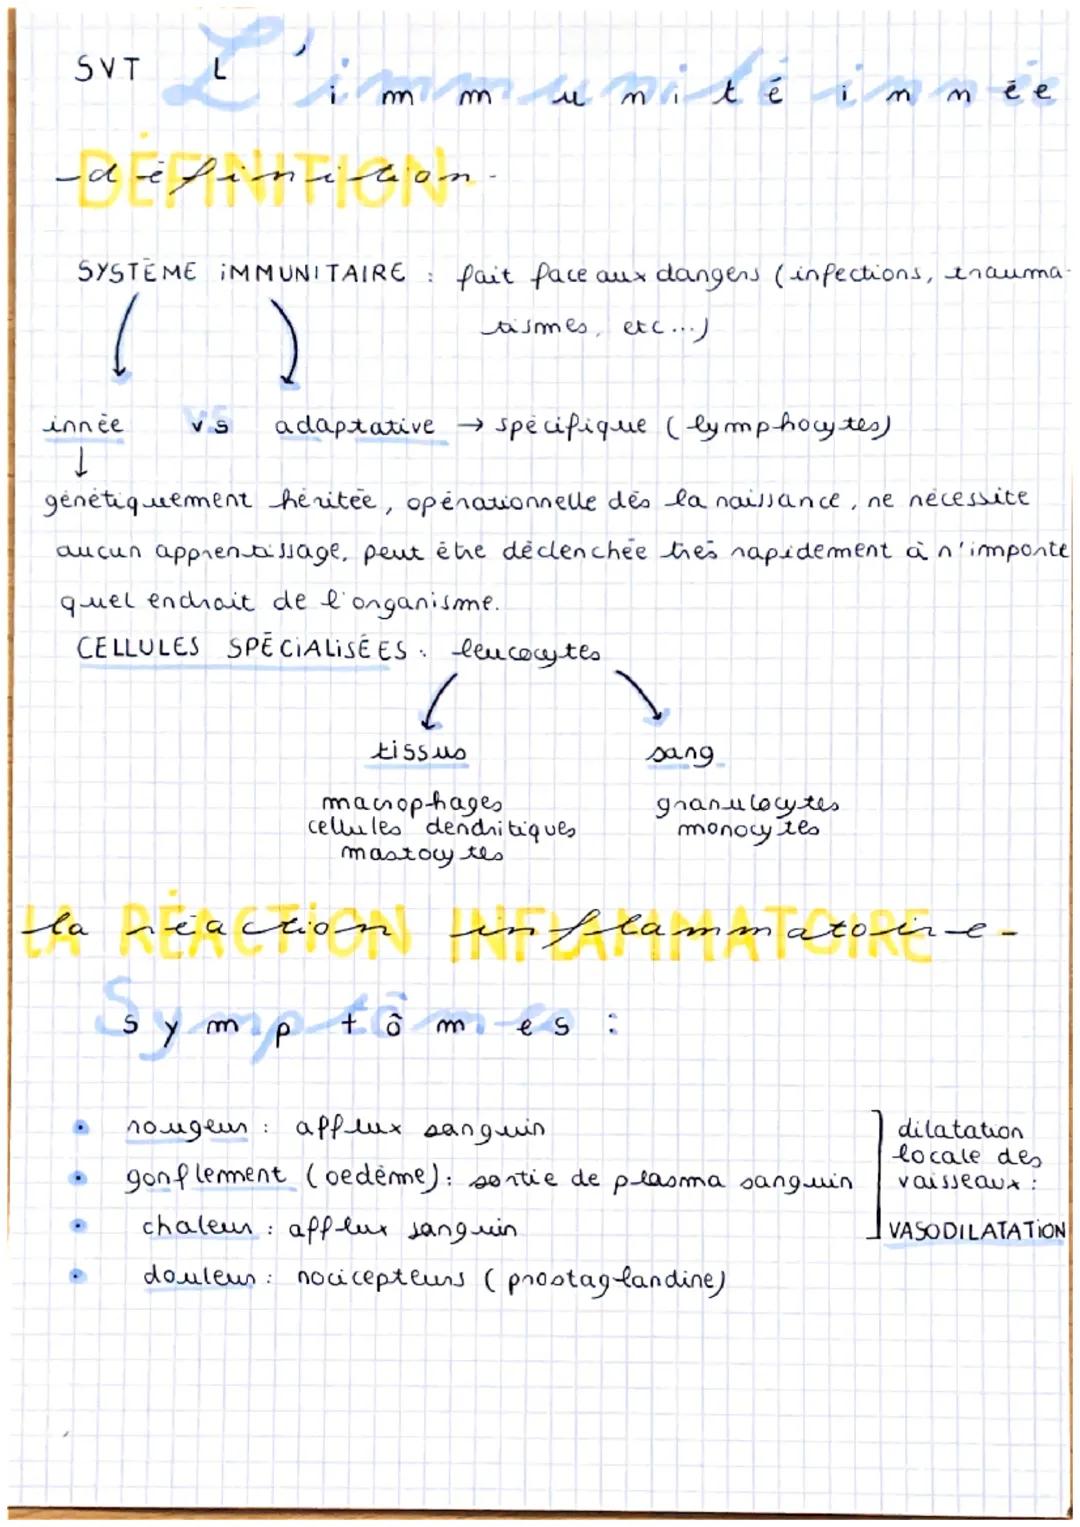 SVT L'immunité innée
DÉFINITION
-définition-
SYSTÈME IMMUNITAIRE : fait face aux dangers (infections, trauma-
tismes, etc...)
innée vs adaptative → spécifique (lymphocytes)
↓
génétiquement héritée, opérationnelle dès la naissance, ne nécessite
aucun apprentissage, peut être déclenchée très rapidement à n'importe
quel endroit de l'organisme.
CELLULES SPÉCIALISÉES : leucocytes
tissus sang
macrophages granulocytes
cellules dendritiques monocytes
mastocytes
LA RÉACTION INFLAMMATOIRE
la réaction inflammatoire-
Symptômes :
• rougeur : afflux sanguin
• gonflement (oedème) : sortie de plasma sanguin
• chaleur : afflux sanguin
• douleur : nocicepteurs (prostaglandine)
dilatation
locale des
vaisseaux :
VASODILATATION